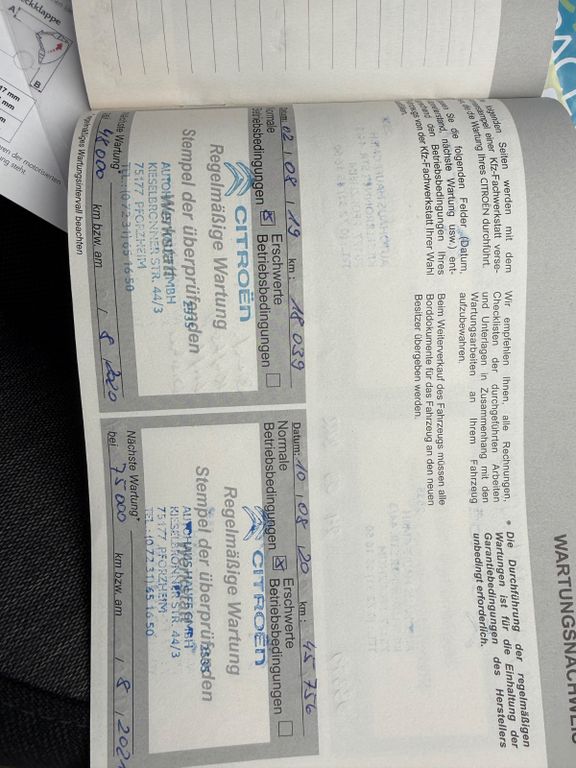 WARTUNGSNACHWEIS
olgenden Seiten werden mit dem
stempel einer Kfz-Fachwerkstatt verse-
die Wartung Ihres CITROËN durchführt.
Sie die folgenden Felder (Datum,
nächste Wartung usw.) ent-
den Betriebsbedingungen Ihres
von der Kfz-Fachwerkstatt Ihrer Wahl
Wir empfehlen Ihnen, alle Rechnungen,
Checklisten der durchgeführten Arbeiten
und Unterlagen in Zusammenhang mit den
Wartungsarbeiten an Ihrem Fahrzeug
aufzubewahren.
Beim Weiterverkauf des Fahrzeugs müssen alle
Borddokumente für das Fahrzeug an den neuen
Besitzer übergeben werden.
* Die Durchführung der regelmäßigen
Wartungen ist für die Einhaltung der
Garantiebedingungen des Herstellers
unbedingt erforderlich.
Datum: 02 , 08 , 19 km: 18 039
Normale Betriebsbedingungen ☒ Erschwerte Betriebsbedingungen ☐
CITROËN
Regelmäßige Wartung
Stempel der überprüfenden
Werkstatt
KIESELBRONNER STR. 44/3
75177 PFORZHEIM
TEL.: (0 72 31) 65 16 50
Nächste Wartung*
bei 48000 km bzw. am , 8 , 2020
Datum: 10 , 08 , 20 km: 45 756
Normale Betriebsbedingungen ☒ Erschwerte Betriebsbedingungen ☐
CITROËN
Regelmäßige Wartung
Stempel der überprüfenden
KIESELBRONNER STR. 44/3
75177 PFORZHEIM
TEL.: (0 72 31) 65 16 50
Nächste Wartung*
bei 75000 km bzw. am , 8 , 2021
Wartungsintervall beachten